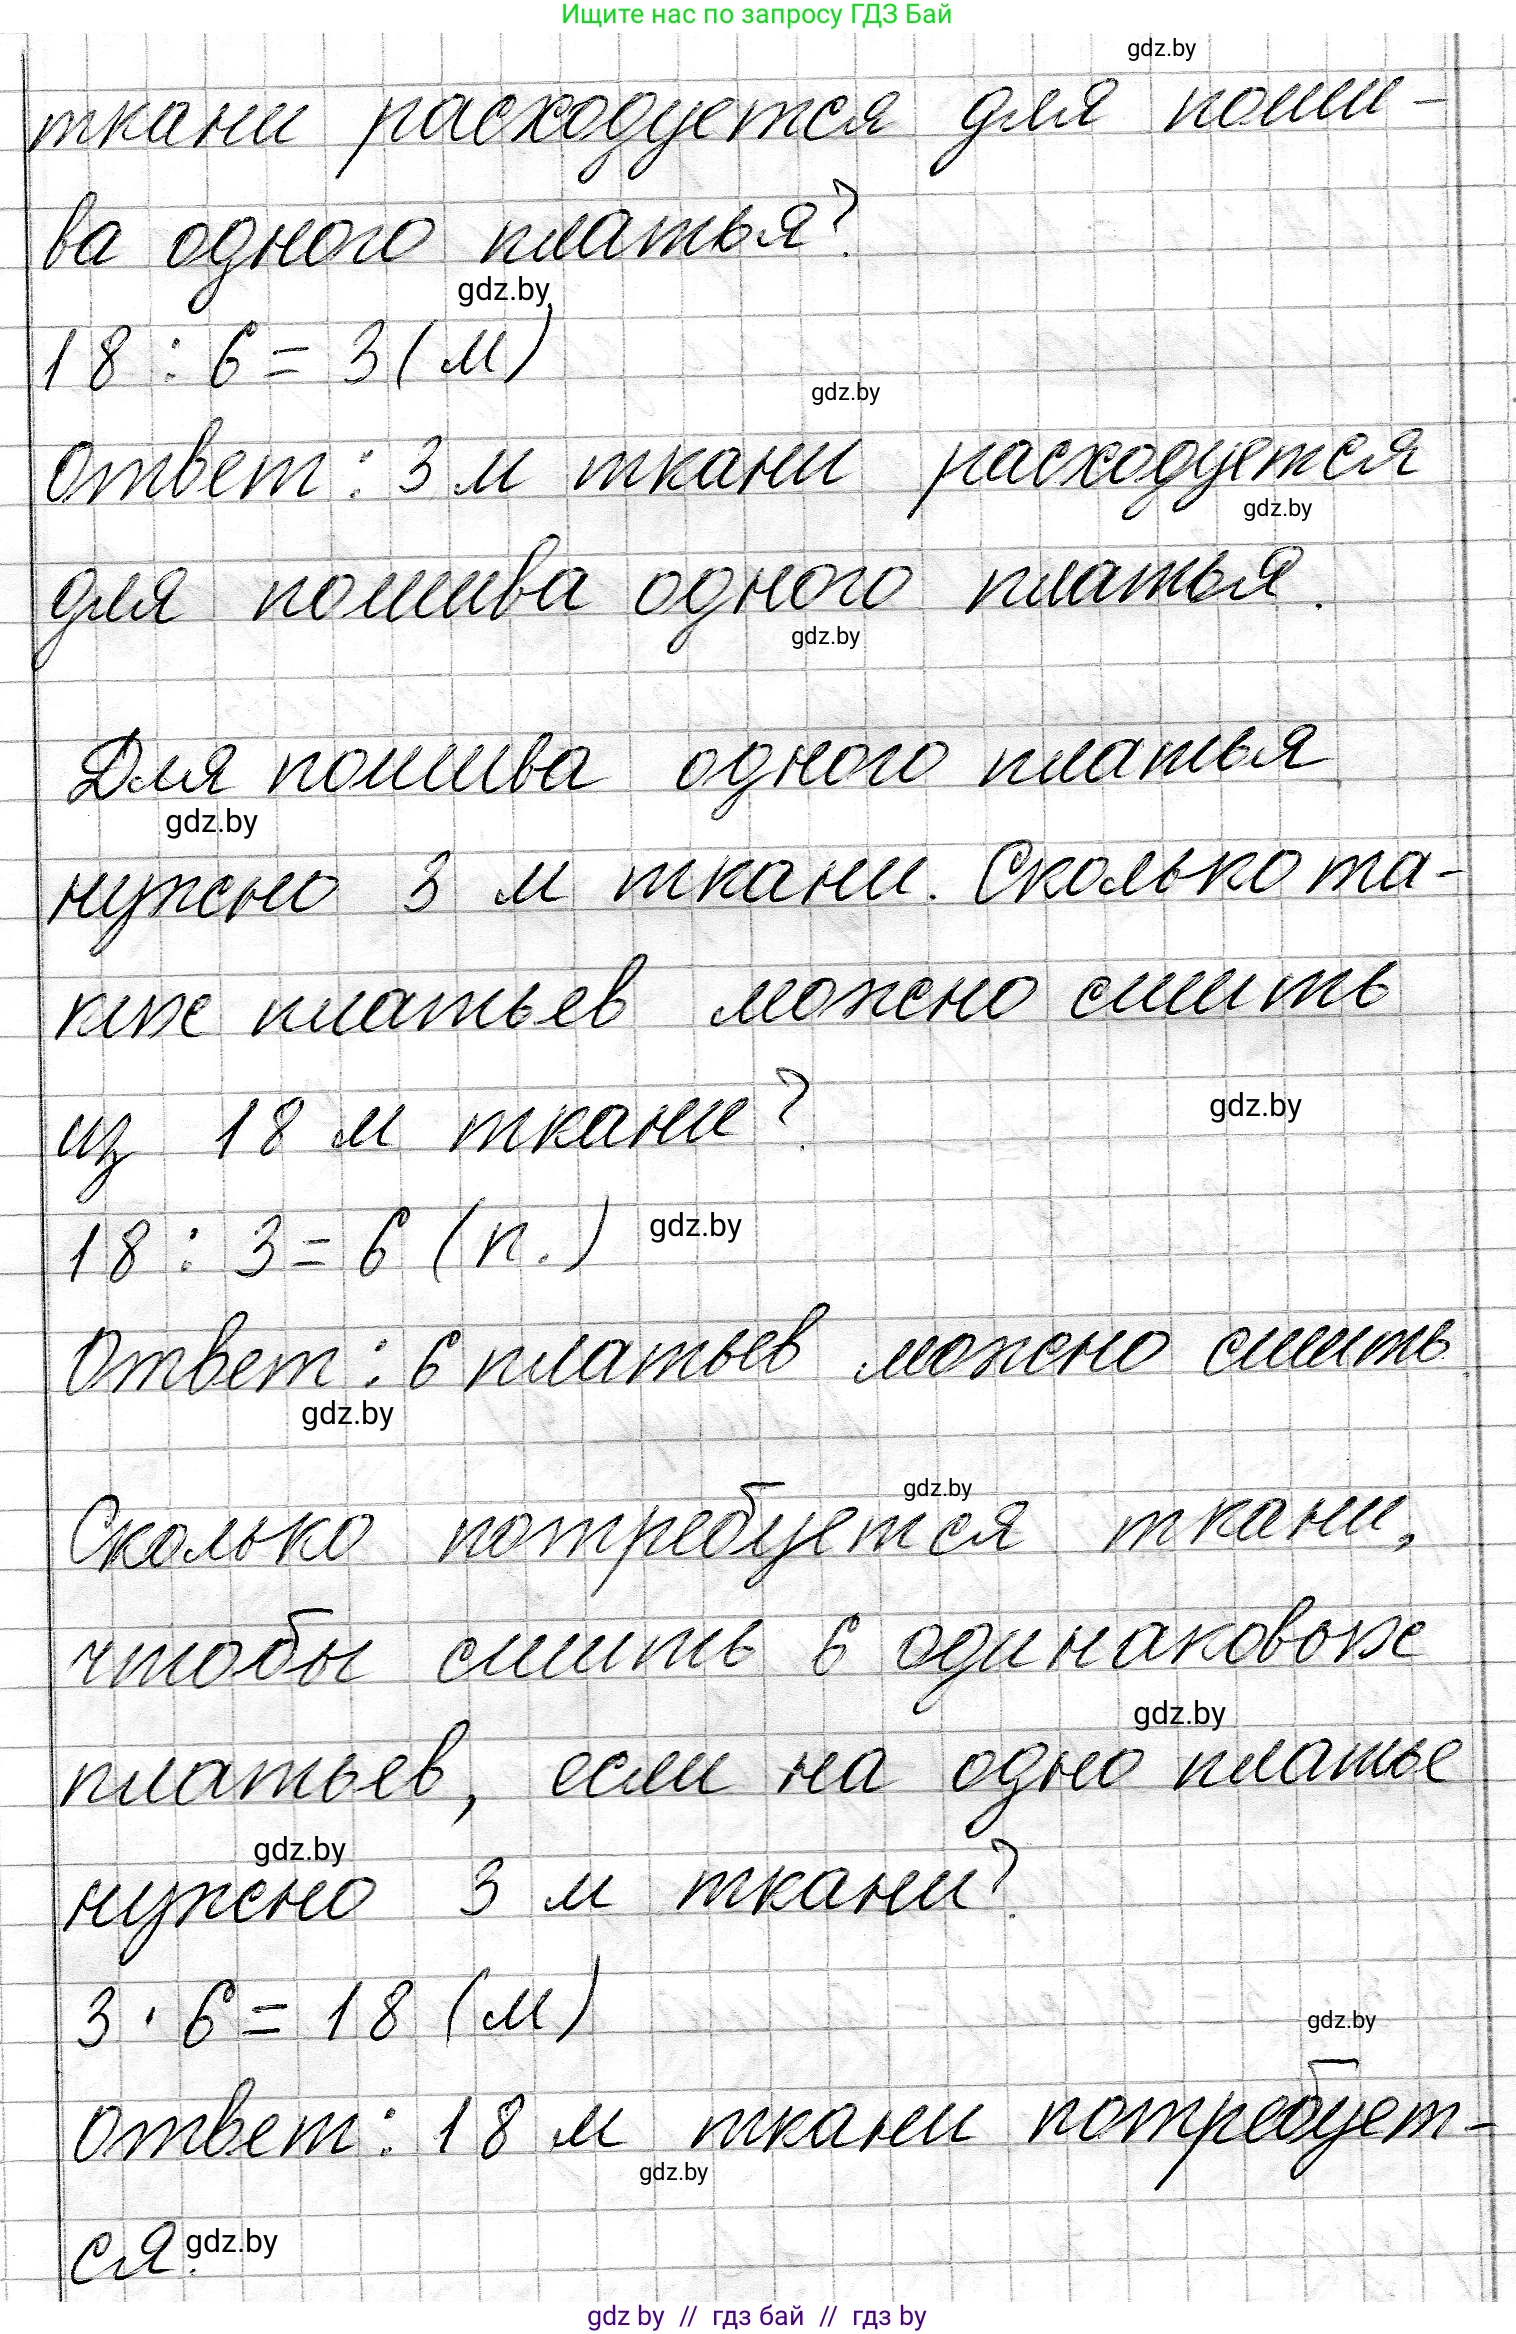 Ищите нас по запросу ГДЗ Бай
gdz.by
ткани расходуется для поши-
ва одного платья?
gdz.by
18 : 6 = 3 (м)
gdz.by
Ответ: 3 м ткани расходуется
gdz.by
для пошива одного платья.
gdz.by
Для пошива одного платья
gdz.by
нужно 3 м ткани. Сколько та-
ких платьев можно сшить
из 18 м ткани?
gdz.by
18 : 3 = 6 (п.)
gdz.by
Ответ: 6 платьев можно сшить.
gdz.by
gdz.by
Сколько потребуется ткани,
чтобы сшить 6 одинаковых
gdz.by
платьев, если на одно платье
gdz.by
нужно 3 м ткани?
3 · 6 = 18 (м)
gdz.by
Ответ: 18 м ткани потребует-
gdz.by
ся.
gdz.by
gdz by // гдз бай // гдз by